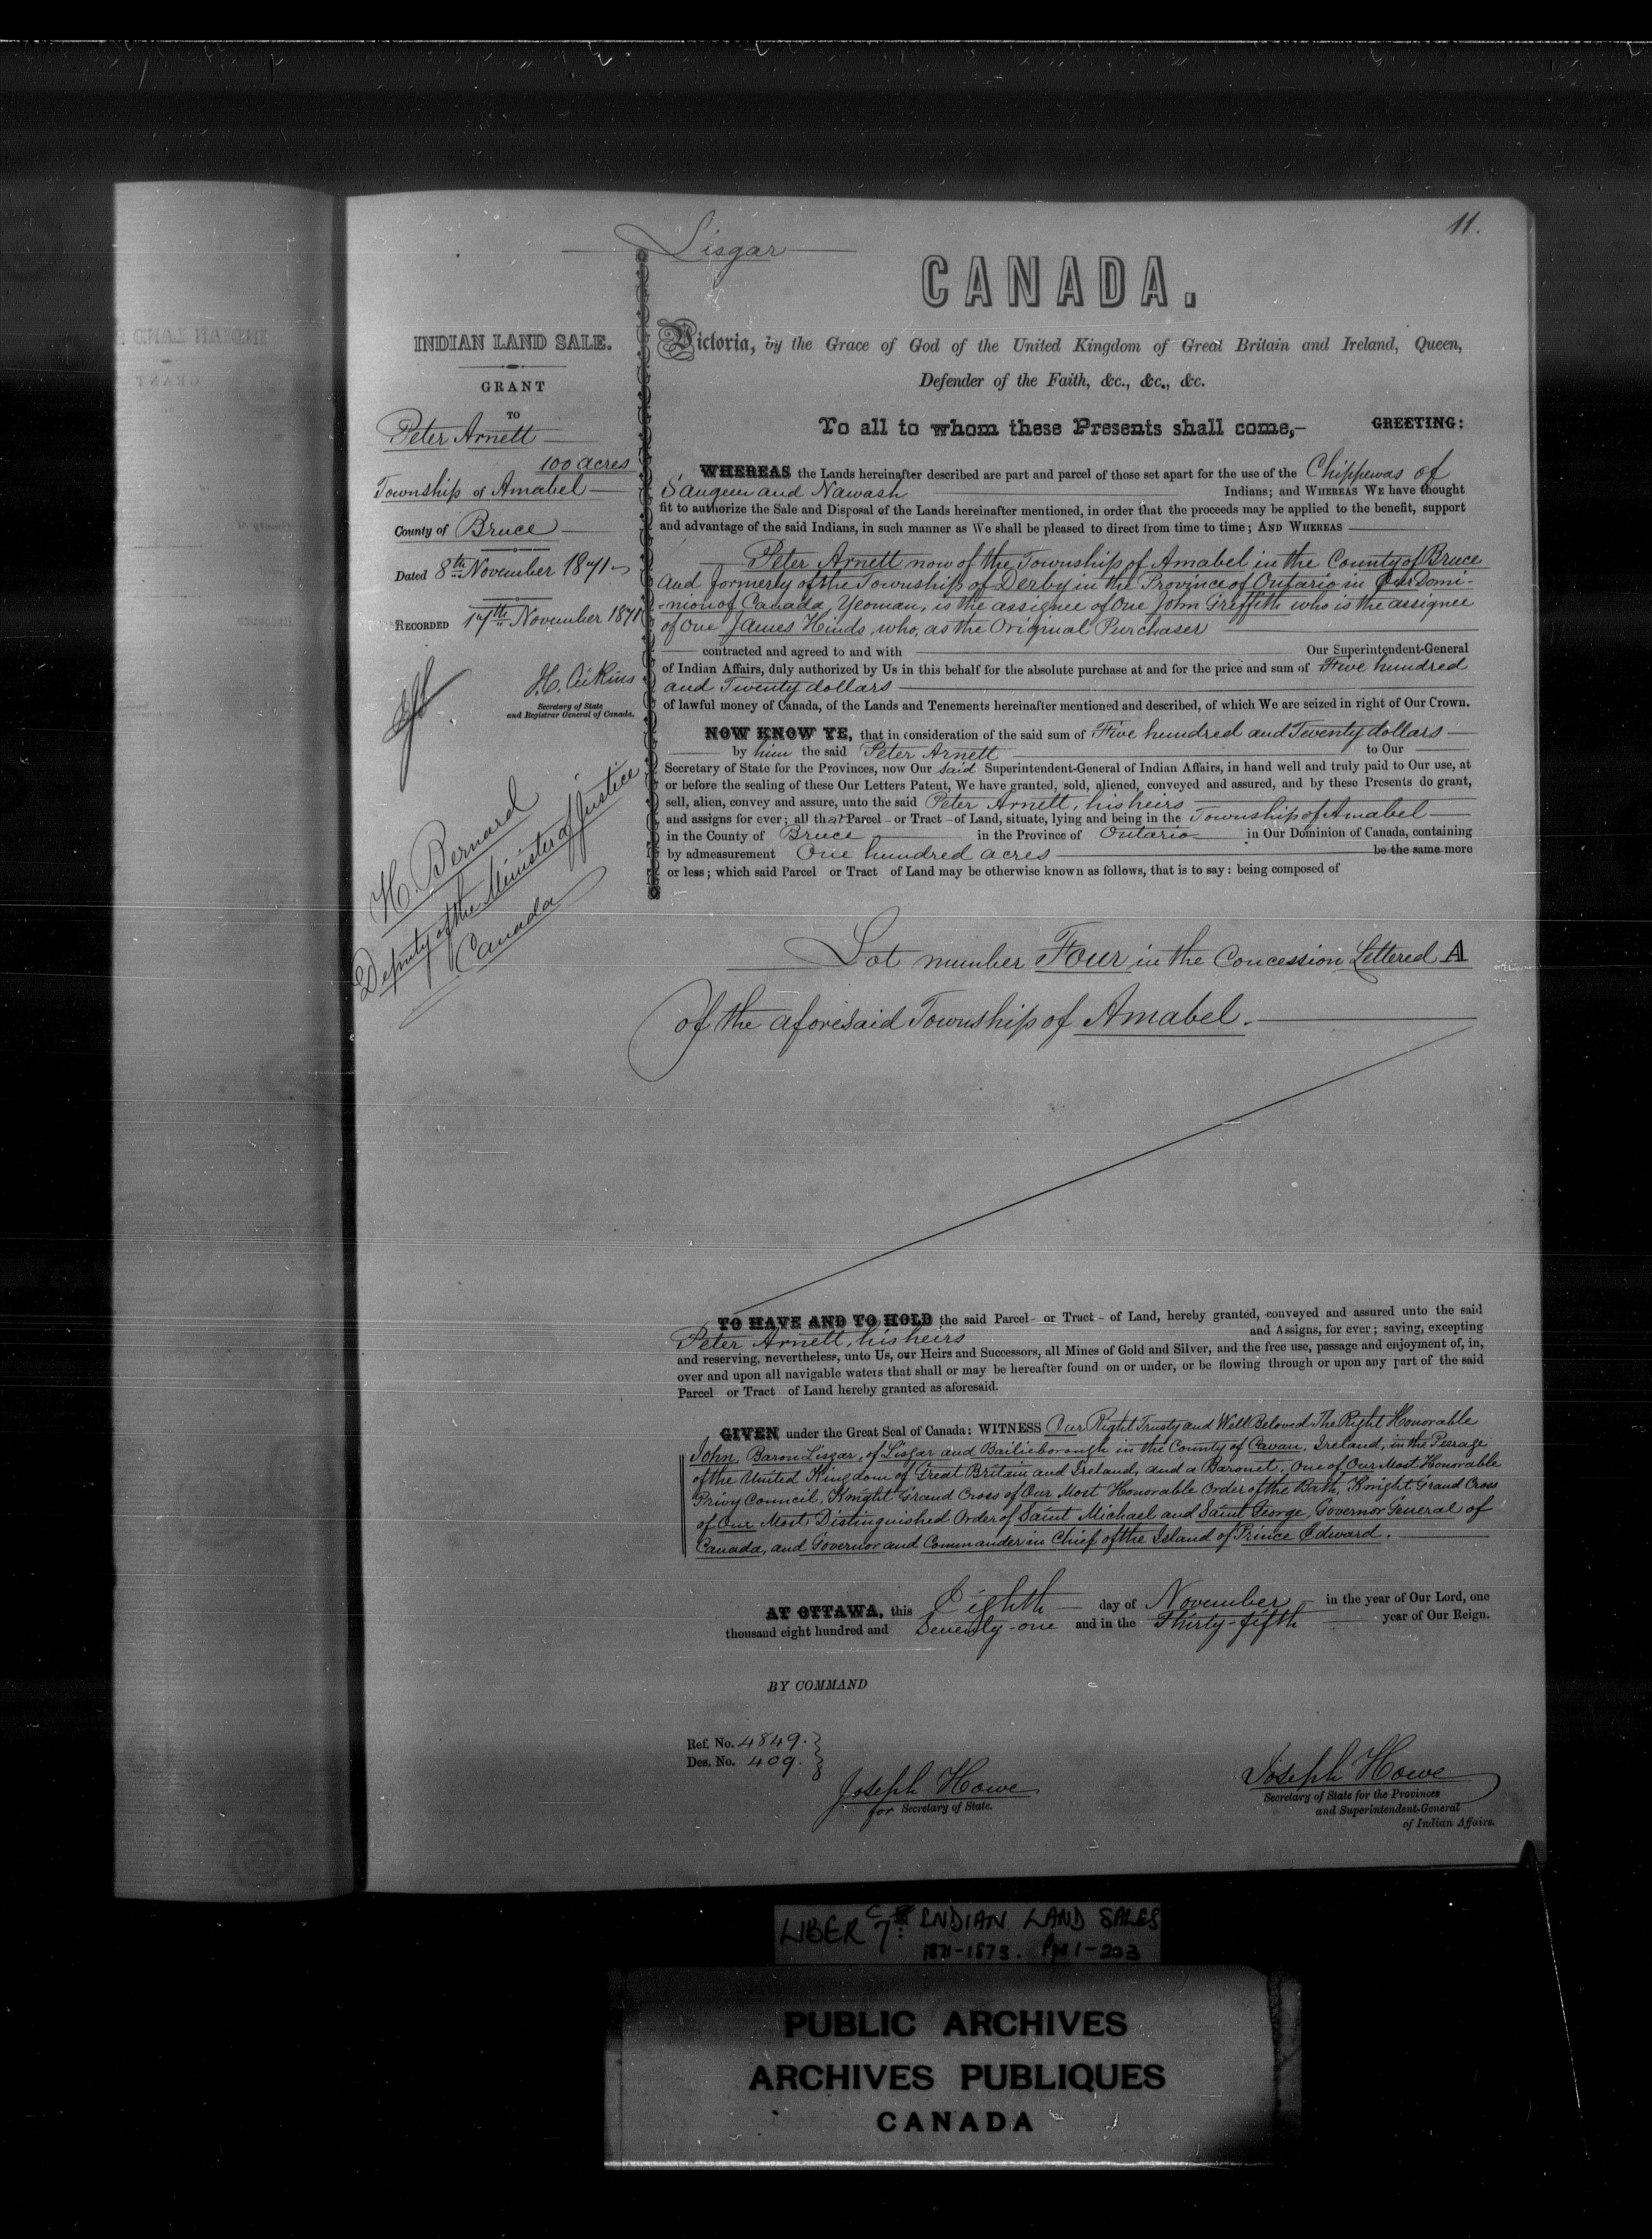 11.
Lisgar
CANADA.
INDIAN LAND SALE.
GRANT
TO
Peter Arnett
100 acres
Township of Amabel
County of Bruce
Dated 8th November 1871
RECORDED 17th November 1871
J.C. Aikins
Secretary of State
and Registrar General of Canada.
H. Bernard
Deputy of the Minister of Justice
Canada
Victoria, by the Grace of God of the United Kingdom of Great Britain and Ireland, Queen,
Defender of the Faith, &c., &c., &c.
To all to whom these Presents shall come,- GREETING:
WHEREAS the Lands hereinafter described are part and parcel of those set apart for the use of the Chippewas of
Saugeen and Nawash Indians; and WHEREAS WE have thought
fit to authorize the Sale and Disposal of the Lands hereinafter mentioned, in order that the proceeds may be applied to the benefit, support
and advantage of the said Indians, in such manner as We shall be pleased to direct from time to time; AND WHEREAS
Peter Arnett now of the Township of Amabel in the County of Bruce
and formerly of the Township of Derby in the Province of Ontario in Our Domi-
-nion of Canada, Yeoman, is the assignee of One John Griffith who is the assignee
of One James Hinds, who, as the Original Purchaser
contracted and agreed to and with Our Superintendent-General
of Indian Affairs, duly authorized by Us in this behalf for the absolute purchase at and for the price and sum of Five hundred
and Twenty dollars
of lawful money of Canada, of the Lands and Tenements hereinafter mentioned and described, of which We are seized in right of Our Crown.
NOW KNOW YE, that in consideration of the said sum of Five hundred and Twenty dollars
by him the said Peter Arnett to Our
Secretary of State for the Provinces, now Our said Superintendent-General of Indian Affairs, in hand well and truly paid to Our use, at
or before the sealing of these Our Letters Patent, We have granted, sold, aliened, conveyed and assured, and by these Presents do grant,
sell, alien, convey and assure, unto the said Peter Arnett, his heirs
and assigns for ever; all that Parcel - or Tract - of Land, situate, lying and being in the Township of Amabel
in the County of Bruce in the Province of Ontario in Our Dominion of Canada, containing
by admeasurement One hundred acres be the same more
or less; which said Parcel or Tract of Land may be otherwise known as follows, that is to say: being composed of
Lot number Four in the Concession Lettered A
of the aforesaid Township of Amabel.
TO HAVE AND TO HOLD the said Parcel - or Tract - of Land, hereby granted, conveyed and assured unto the said
Peter Arnett, his heirs and Assigns, for ever; saving, excepting
and reserving, nevertheless, unto Us, our Heirs and Successors, all Mines of Gold and Silver, and the free use, passage and enjoyment of, in,
over and upon all navigable waters that shall or may be hereafter found on or under, or be flowing through or upon any part of the said
Parcel or Tract of Land hereby granted as aforesaid.
GIVEN under the Great Seal of Canada: WITNESS Our Right Trusty and Well Beloved The Right Honorable
John, Baron Lisgar, of Lisgar and Bailieborough in the County of Cavan, Ireland, in the Peerage
of the United Kingdom of Great Britain and Ireland, and a Baronet, One of Our Most Honorable
Privy Council, Knight Grand Cross of Our Most Honorable Order of the Bath, Knight Grand Cross
of Our Most Distinguished Order of Saint Michael and Saint George, Governor General of
Canada, and Governor and Commander in Chief of the Island of Prince Edward.
AT OTTAWA, this Eighth day of November in the year of Our Lord, one
thousand eight hundred and Seventy-one and in the Thirty-fifth year of Our Reign.
BY COMMAND
Ref. No. 4849.
Des. No. 409.
Joseph Howe
for Secretary of State.
Joseph Howe
Secretary of State for the Provinces
and Superintendent-General
of Indian Affairs.
LIBER C7: INDIAN LAND SALES
1871-1873. Pgs 1-203
PUBLIC ARCHIVES
ARCHIVES PUBLIQUES
CANADA